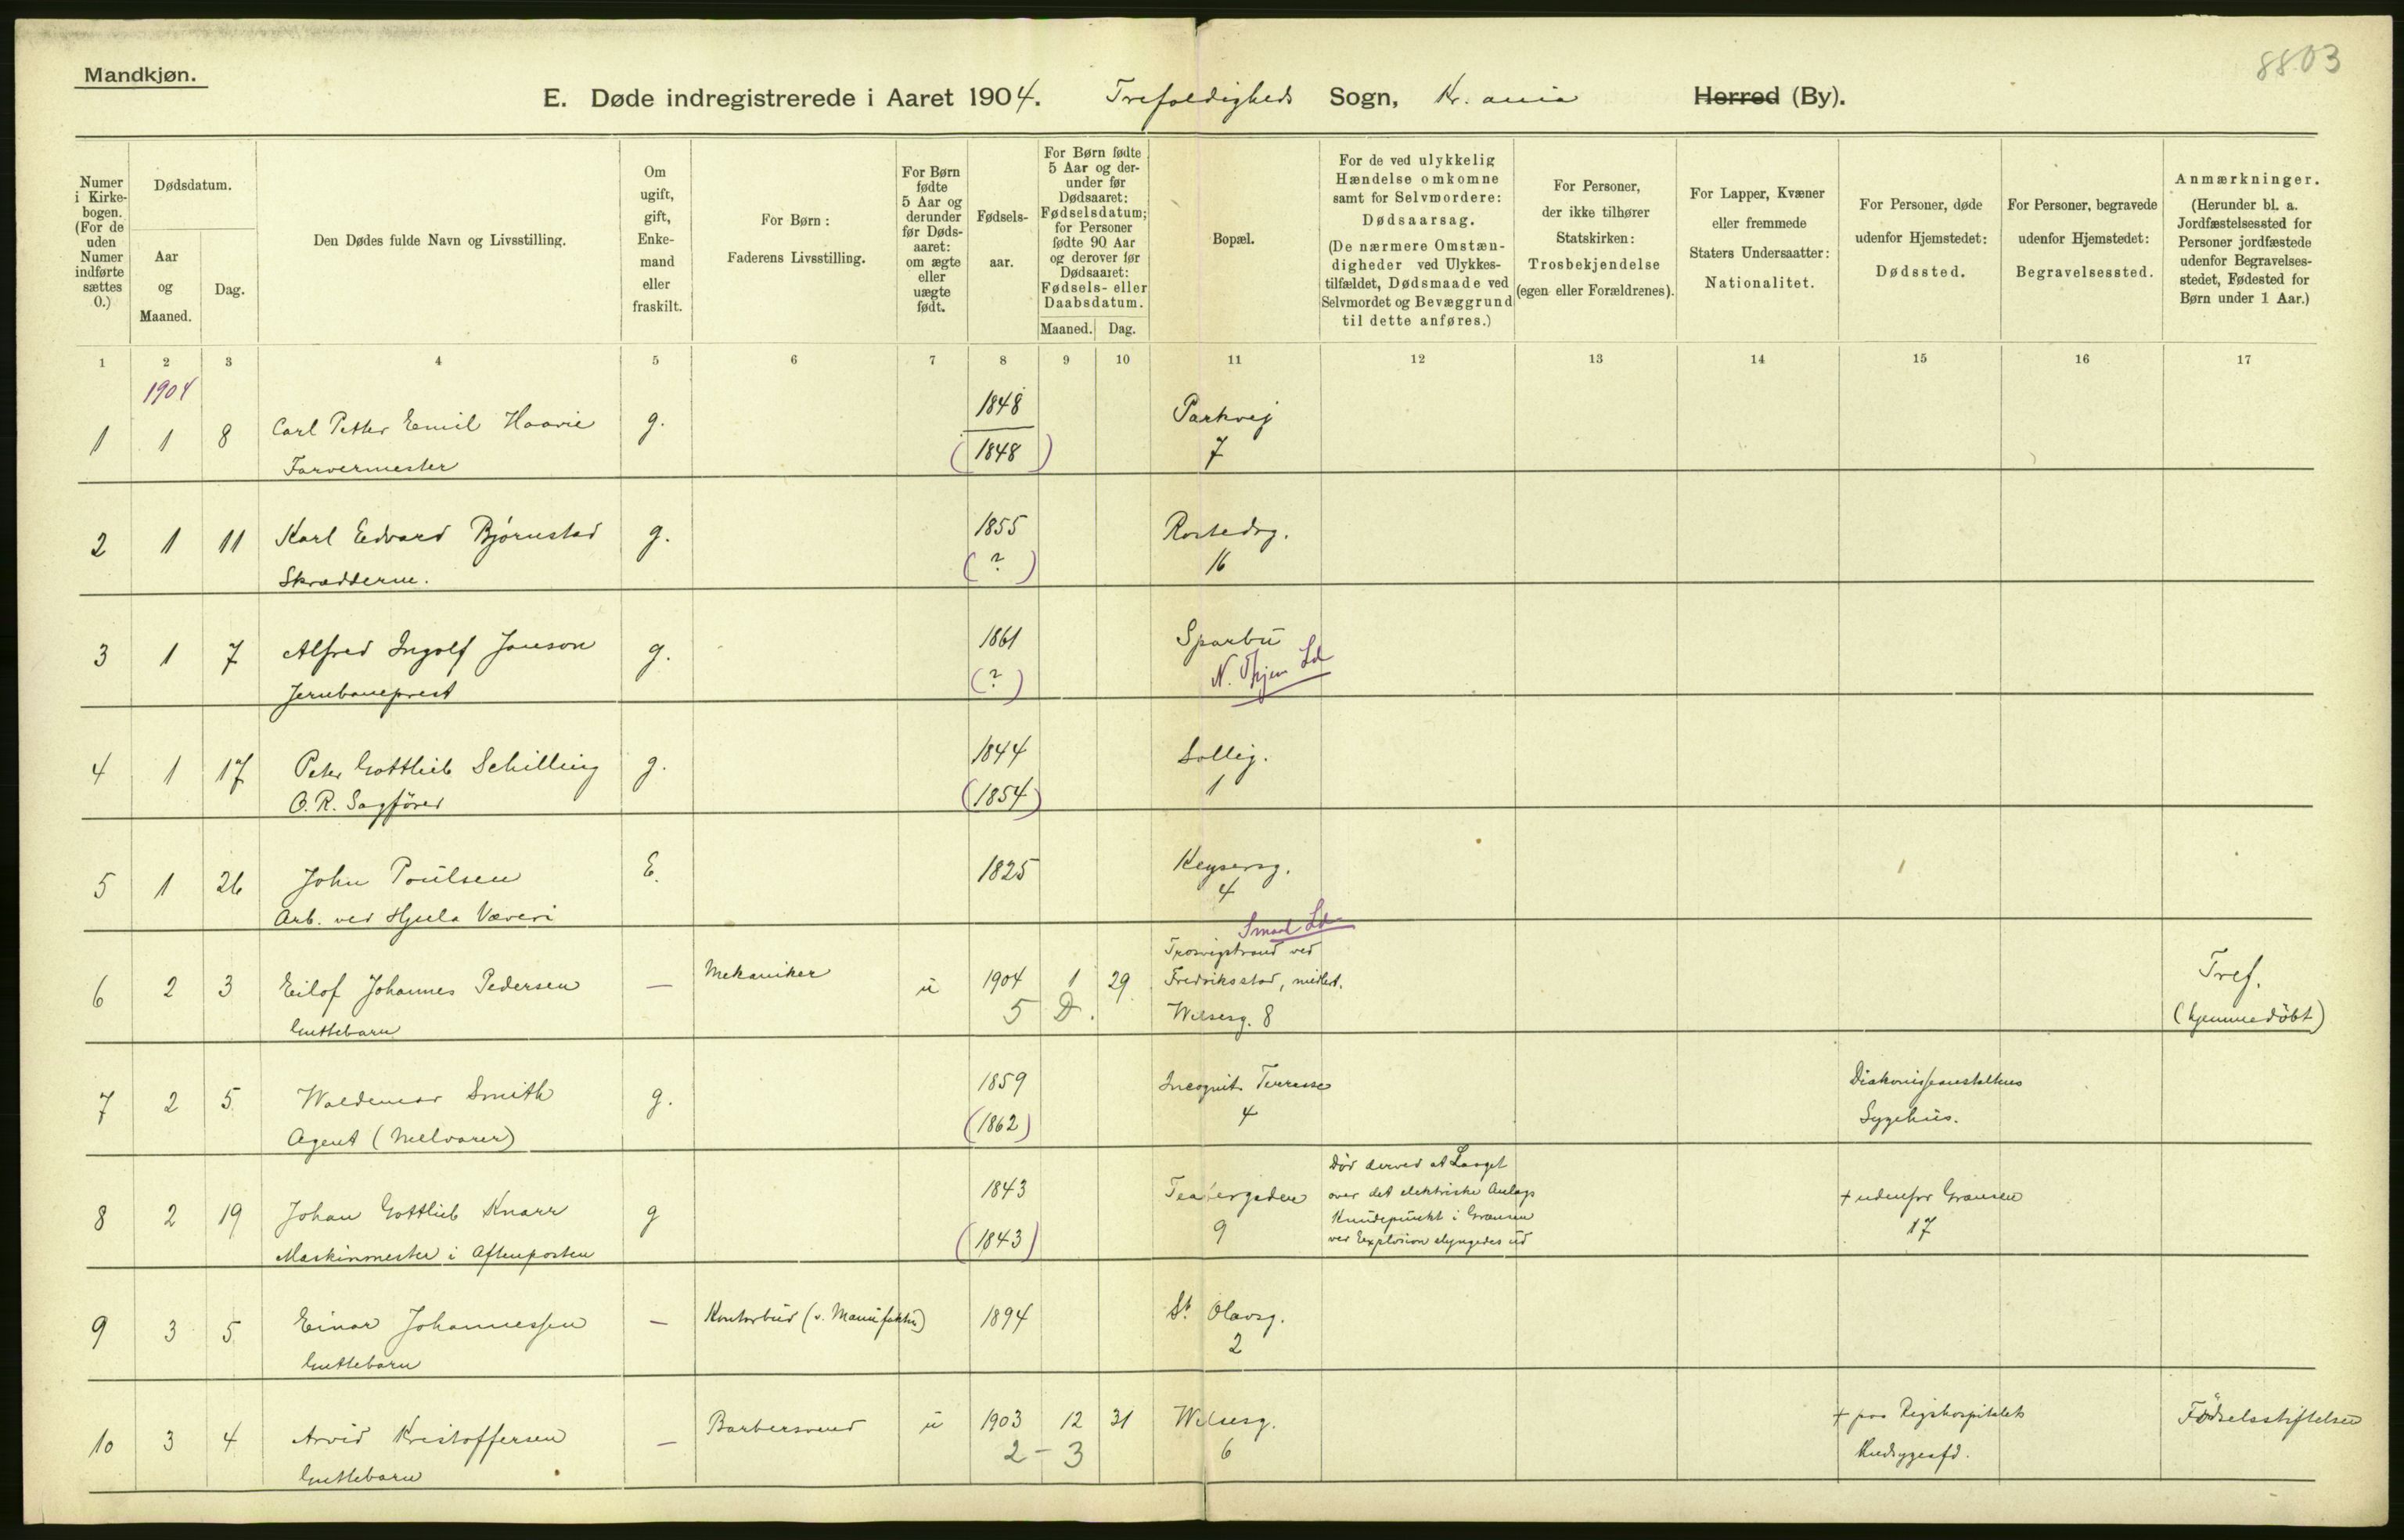 Mandkjøn.
8803
E. Døde indregistrerede i Aaret 1904. Trefoldigheds Sogn, Kr.ania Herred (By).
Numer i Kirkebogen. (For de uden Numer indførte sættes 0.)
Dødsdatum.
Aar og Maaned.
Dag.
Den Dødes fulde Navn og Livsstilling.
Om ugift, gift, Enkemand eller fraskilt.
For Børn: Faderens Livsstilling.
For Børn fødte 5 Aar og derunder før Dødsaaret: om ægte eller uægte født.
Fødselsaar.
For Børn fødte 5 Aar og derunder før Dødsaaret: Fødselsdatum; for Personer fødte 90 Aar og derover før Dødsaaret: Fødsels- eller Daabsdatum.
Maaned. Dag.
Bopæl.
For de ved ulykkelig Hændelse omkomne samt for Selvmordere: Dødsaarsag. (De nærmere Omstændigheder ved Ulykkestilfældet, Dødsmaade ved Selvmordet og Bevæggrund til dette anføres.)
For Personer, der ikke tilhører Statskirken: Trosbekjendelse (egen eller Forældrenes).
For Lapper, Kvæner eller fremmede Staters Undersaatter: Nationalitet.
For Personer, døde udenfor Hjemstedet: Dødssted.
For Personer, begravede udenfor Hjemstedet: Begravelsessted.
Anmærkninger. (Herunder bl. a. Jordfæstelsessted for Personer jordfæstede udenfor Begravelsesstedet, Fødested for Børn under 1 Aar.)
1 2 3 4 5 6 7 8 9 10 11 12 13 14 15 16 17
1904
1 1 8 Carl Petter Emil Haavie g. 1848 Parkvej
Farvermester (1848) 7
2 1 11 Karl Edvard Bjørnstad g. 1855 Rostedsg.
Skrædderm. (?) 16
3 1 7 Alfred Ingolf Janson g. 1861 Sparbu
Jernbaneprest (?) N. Thjem Ld
4 1 17 Peter Gottlieb Schilling g. 1844 Sollig.
O.R. Sagfører (1854) 1
5 1 26 John Poulsen E. 1825 Keysersg.
Arb. ved Hjula Væveri 4
Smaal Ld
Trosvigstrand ved
6 2 3 Eilof Johannes Pedersen — Mekaniker u 1904 1 29 Fredriksstad, midlert. Tref.
Guttebarn 5 D. Welsesg. 8 (hjemmedøbt)
7 2 5 Waldemar Smith g. 1859 Incognit. Terrasse Diakonisseanstaltens
Agent (Melvarer) (1862) 4 Sygehus.
Død derved at Laaget
8 2 19 Johan Gottlieb Knarr g 1843 Teatergaden over det elektriske Anlægs † udenfor Grænsen
Knudepunkt i Grænsen 17
Maskinmester i Aftenposten (1843) 9 ved Explosion slyngedes ud
9 3 5 Einar Johannessen — Kontorbud (v. Manufaktur) 1894 St. Olavsg.
Guttebarn 2
10 3 4 Arvid Kristoffersen — Barbersvend u 1903 12 31 Welsesg. † paa Rigshospitalets Fødselsstiftelsen
Guttebarn 2 - 3 6 Hudsygeafd.